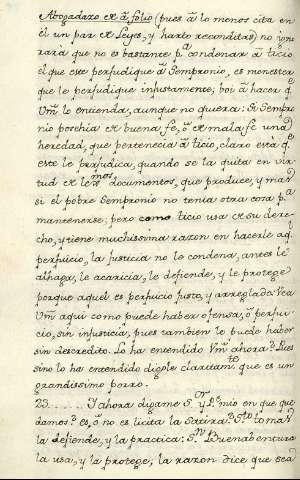 Abogadazo de á folio (pues á lo menos cita en
él un par de Leyes, y harto reconditas) no igno
rará que no es bastante pª condenar á ticio
el que este perjudique á Sempronio, es menester
que le perjudique injustamente; boi á hacer q.
Vm. lo entienda, aunque no quiera: Si Sempr
nio poschia de buena fe, ó de mala fe una
heredad, que pertenecia á ticio, claro está qᵉ
este le perjudica, quando se la quita en vir-
tud de leg.mos documentos, que produce, y mas
si el pobre Sempronio no tenia otra cosa pª
mantenerse; pero como ticio usa de su dere-
cho, y tiene muchissima razon en hacerle aql
perjuicio, la justicia no lo condena, antes le
alhaga, le acaricia, le defiende, y le protege
porque aquel es perjucio justo, y arreglado. Vea
Vm. aqui como puede haber ofensa, ó perjui-
cio, sin injusticia, pues tambien le puede haber
sin descredito. Lo ha entendido Vm. ahora? Pues
sino lo ha entendido digole claritam.te que es un
grandissimo porro.
23....... Y ahora digame S.or y D.n mio en que que
damos? es, ó no es licita la Satira? Sto. tomas
la defiende, y la practica: S.n Buenabentura
la usa, y la protege; la razon dice que sea